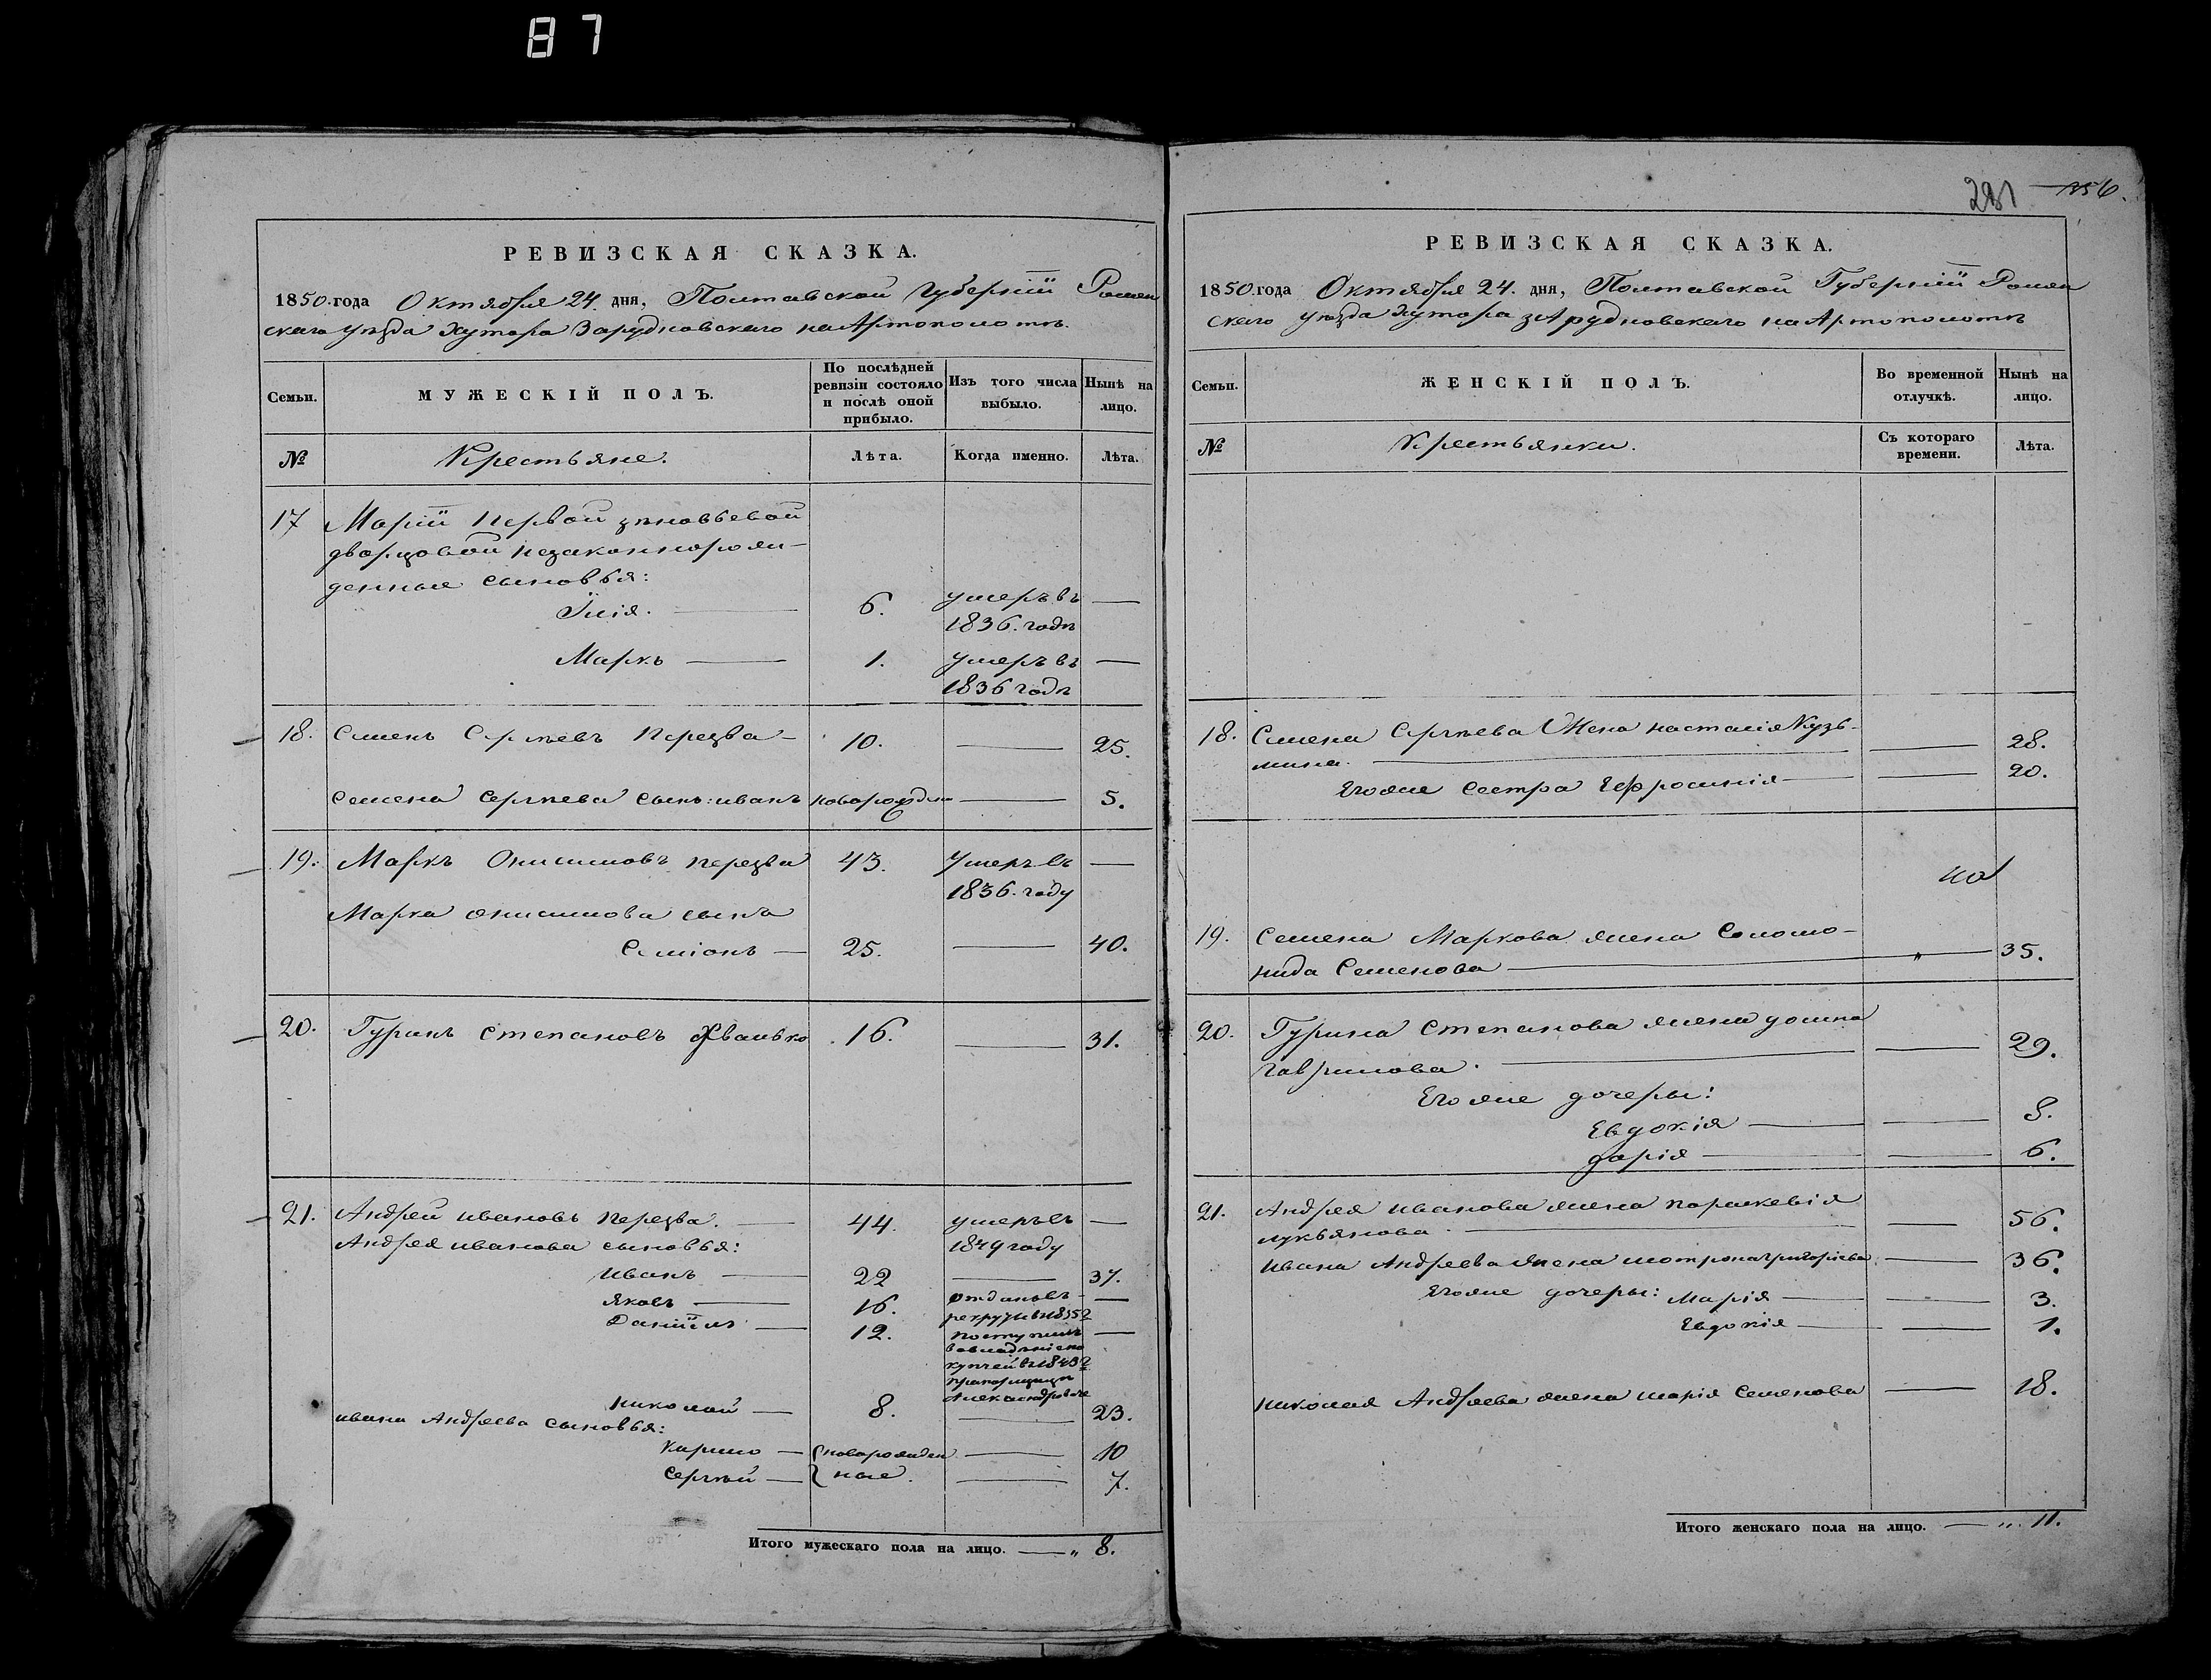 87
РЕВИЗСКАЯ СКАЗКА.
1850.года Октября 24. дня, Полтавской Губерніи Ромен
скаго уѣзда Хутора Зарудновскаго на Артополотѣ.
Семьи.
МУЖЕСКІЙ ПОЛЪ.
По послѣдней ревизіи состояло и послѣ оной прибыло.
Изъ того числа выбыло.
Нынѣ на лицо.
№
Крестьяне.
Лѣта.
Когда именно.
Лѣта.
17 Маріи Первой зѣновьевой
дворцовой незаконнорож-
денные сыновья:
Илія. — 6. умеръ въ —
1836. годѣ
Маркъ — 1. умеръ въ —
1836 годѣ
18. Семенъ Сергѣевъ Перезва - 10. — 25.
Семена Сергѣева сынъ: иванъ новорожден — 5.
19. Маркъ Онисимовъ перезва 43. Умеръ въ —
1836. году
Марка онисимова сынъ
Семіонъ — 25. — 40.
20. Гуринъ Степановъ 16. — 31.
21. Андрей ивановъ Перезва. — 44. умеръ въ —
Андрея иванова сыновья: 1849 году
иванъ — 22 — 37.
яковъ — 16. отданъ въ —
рекруты въ
Даніилъ — 12. поступилъ —
во владѣніе по
купчей въ 1843
прапорщицѣ
николай — 8. — 23.
ивана Андреева сыновья:
кирило — новорожден — 10
сергѣй — ные. — 7.
Итого мужескаго пола на лицо. — „ 8.
281 156.
РЕВИЗСКАЯ СКАЗКА.
1850.года Октября 24. дня, Полтавской Губерніи Ромен
скаго уѣзда Хутора зАрудновскаго на Артополотѣ
Семьи.
ЖЕНСКІЙ ПОЛЪ.
Во временной отлучкѣ.
Нынѣ на лицо.
№
Крестьянки.
Съ котораго времени.
Лѣта.
18. Семена Сергѣева Жена настасія Кузь-
мина. — — 28.
Егоже сестра Ефросинія — — 20.
19. Семена Маркова жена Соломо-
нида Семенова — „ 35.
20. Гурина Степанова жена домна
гаврилова. — — 29.
Егоже дочеры:
Евдокія — — 8.
дарія — — 6.
21. Андрея иванова жена параскевія
лукьянова. — — 56.
ивана Андреева жена мотрона григорьева — 36.
Егоже дочеры: Марія — — 3.
Евдокія — — 1.
николая Андреева жена марія Семенова — 18.
Итого женскаго пола на лицо. — „ 11.